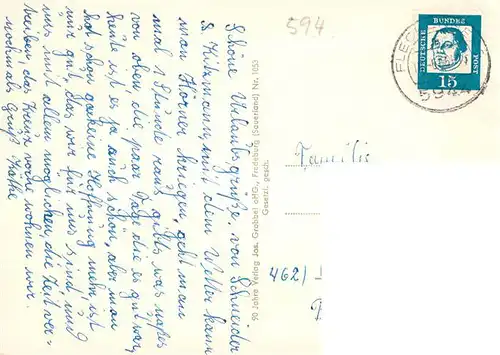 594
DEUTSCHE BUNDESPOST
15
FLEC
594
Schöne Urlaubsgrüße von Schneider
u. Witzmann, mit dem Wetter kann
man Hörner kriegen, geht man
mal 1 Stunde raus gibt's was nasses
von oben die paar Tage die es gut war,
heute ist es ja auch schön, aber man
hat schon gar keine Hoffnung mehr, ist
nur gut, das wir für uns sind, und
uns mit allem möglichen, die Zeit ver-
treiben, das Kreuz vorne wohnen wir.
nochmals Gruß Käthe
90 Jahre Verlag Jos. Grobbel oHG., Fredeburg (Sauerland) Nr. 1053
Gesetzl. gesch.
Familie
462/